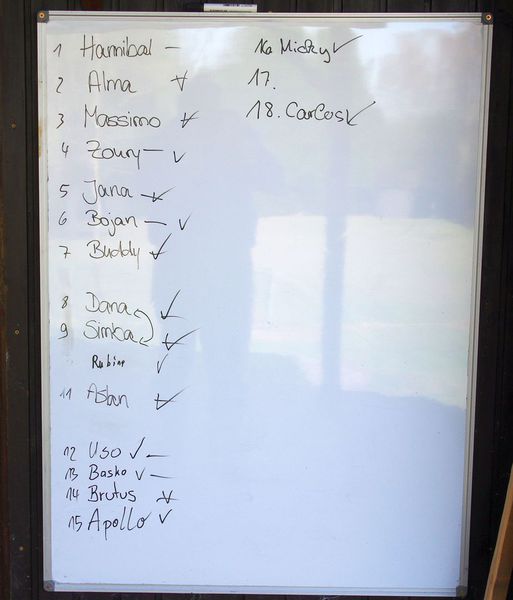 1 Hannibal –
2 Alma ✓
3 Massimo ✓
4 Zoury – ✓
5 Jana ✓
6 Bojan – ✓
7 Buddy ✓
8 Dana ✓
9 Simba ✓
Rubin ✓
11 Aslan ✓
12 Uso ✓ –
13 Basko ✓ –
14 Brutus ✓
15 Apollo ✓
16 Micky ✓
17.
18. Carlos ✓